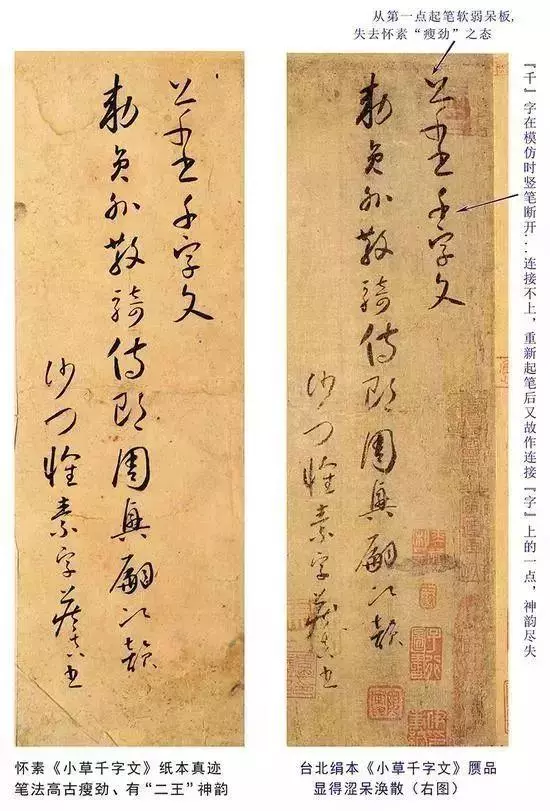 从第一点起笔软弱呆板,
失去怀素“瘦劲”之态
『千』字在模仿时竖笔断开…连接不上，重新起笔后又故作连接『字』上的一点，神韵尽失
草書千字文
勅員外散騎侍郎周興嗣次韻
沙門懷素字藏真書
草書千字文
勅員外散騎侍郎周興嗣次韻
沙門懷素字藏真書
怀素《小草千字文》纸本真迹
笔法高古瘦劲、有“二王”神韵
台北绢本《小草千字文》赝品
显得涩呆涣散（右图）